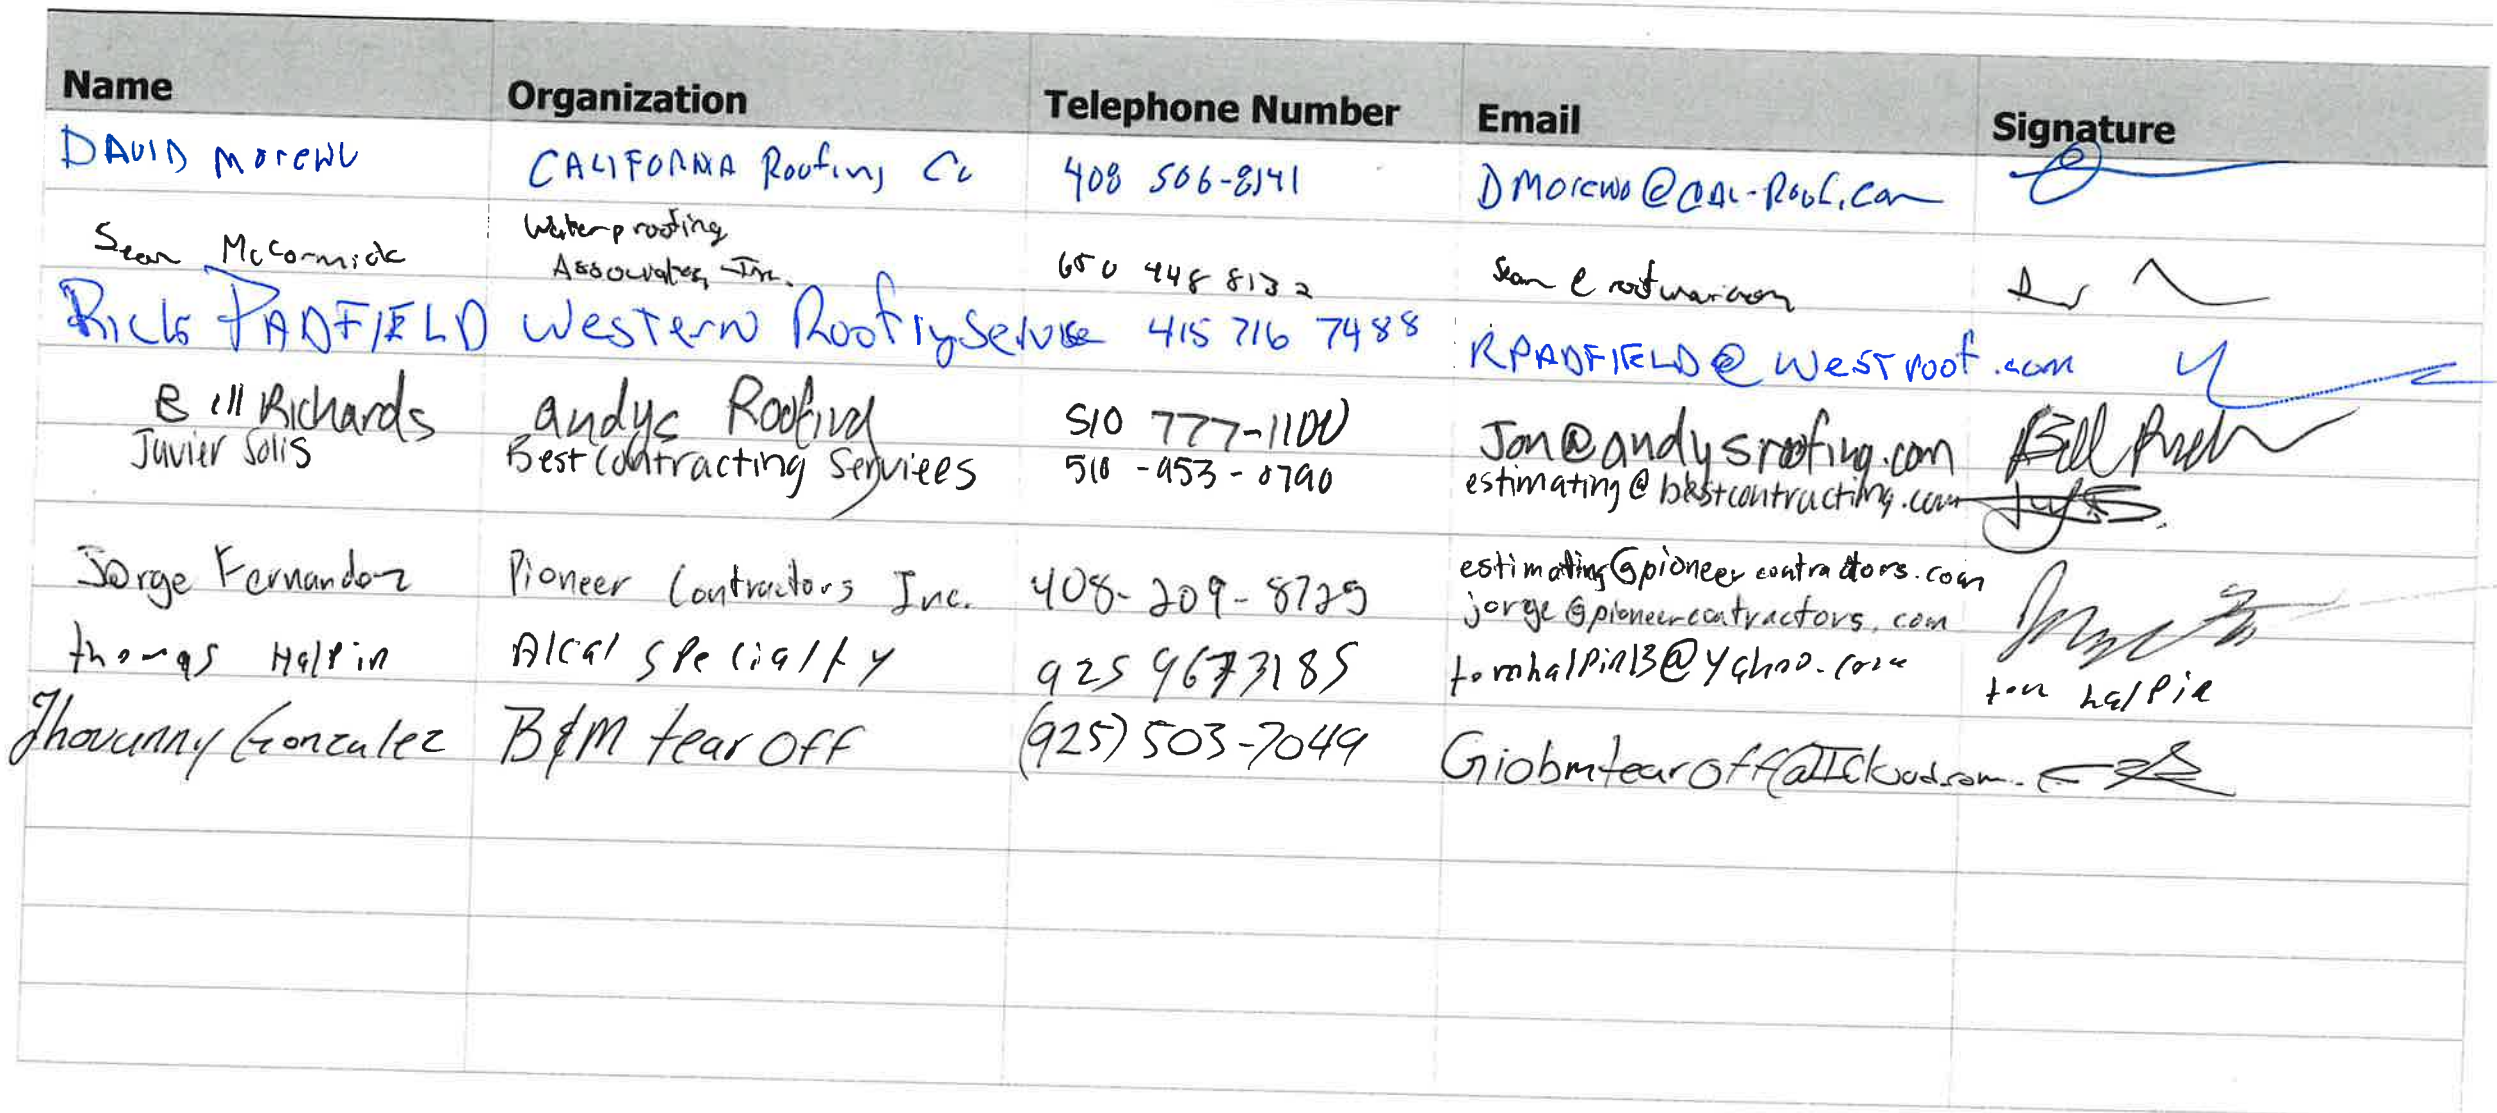 Name Organization Telephone Number Email Signature
DAVID MORENO CALIFORNIA Roofing Co 408 506-8141 DMoreno@CAL-Roof.com
Sean McCormick Waterproofing Associates, Inc. 650 448 8132
Rick PADFIELD Western Roofing Service 415 716 7488 RPADFIELD@Westroof.com
Bill Richards andys Roofing 510 777-1100 Jon@andysroofing.com Bill Rich
Javier Solis Best Contracting Services 510-953-0790 estimating@bestcontracting.com
Jorge Fernandez Pioneer Contractors Inc. 408-209-8725 estimating@pioneercontractors.com
jorge@pioneercontractors.com
thomas Halpin Alcal Specialty 925 9673185 tomhalpin13@yahoo.com tom halpin
Jhovanny Gonzalez B&M tear off (925) 503-7049 Giobmtearoff@ICloud.com.